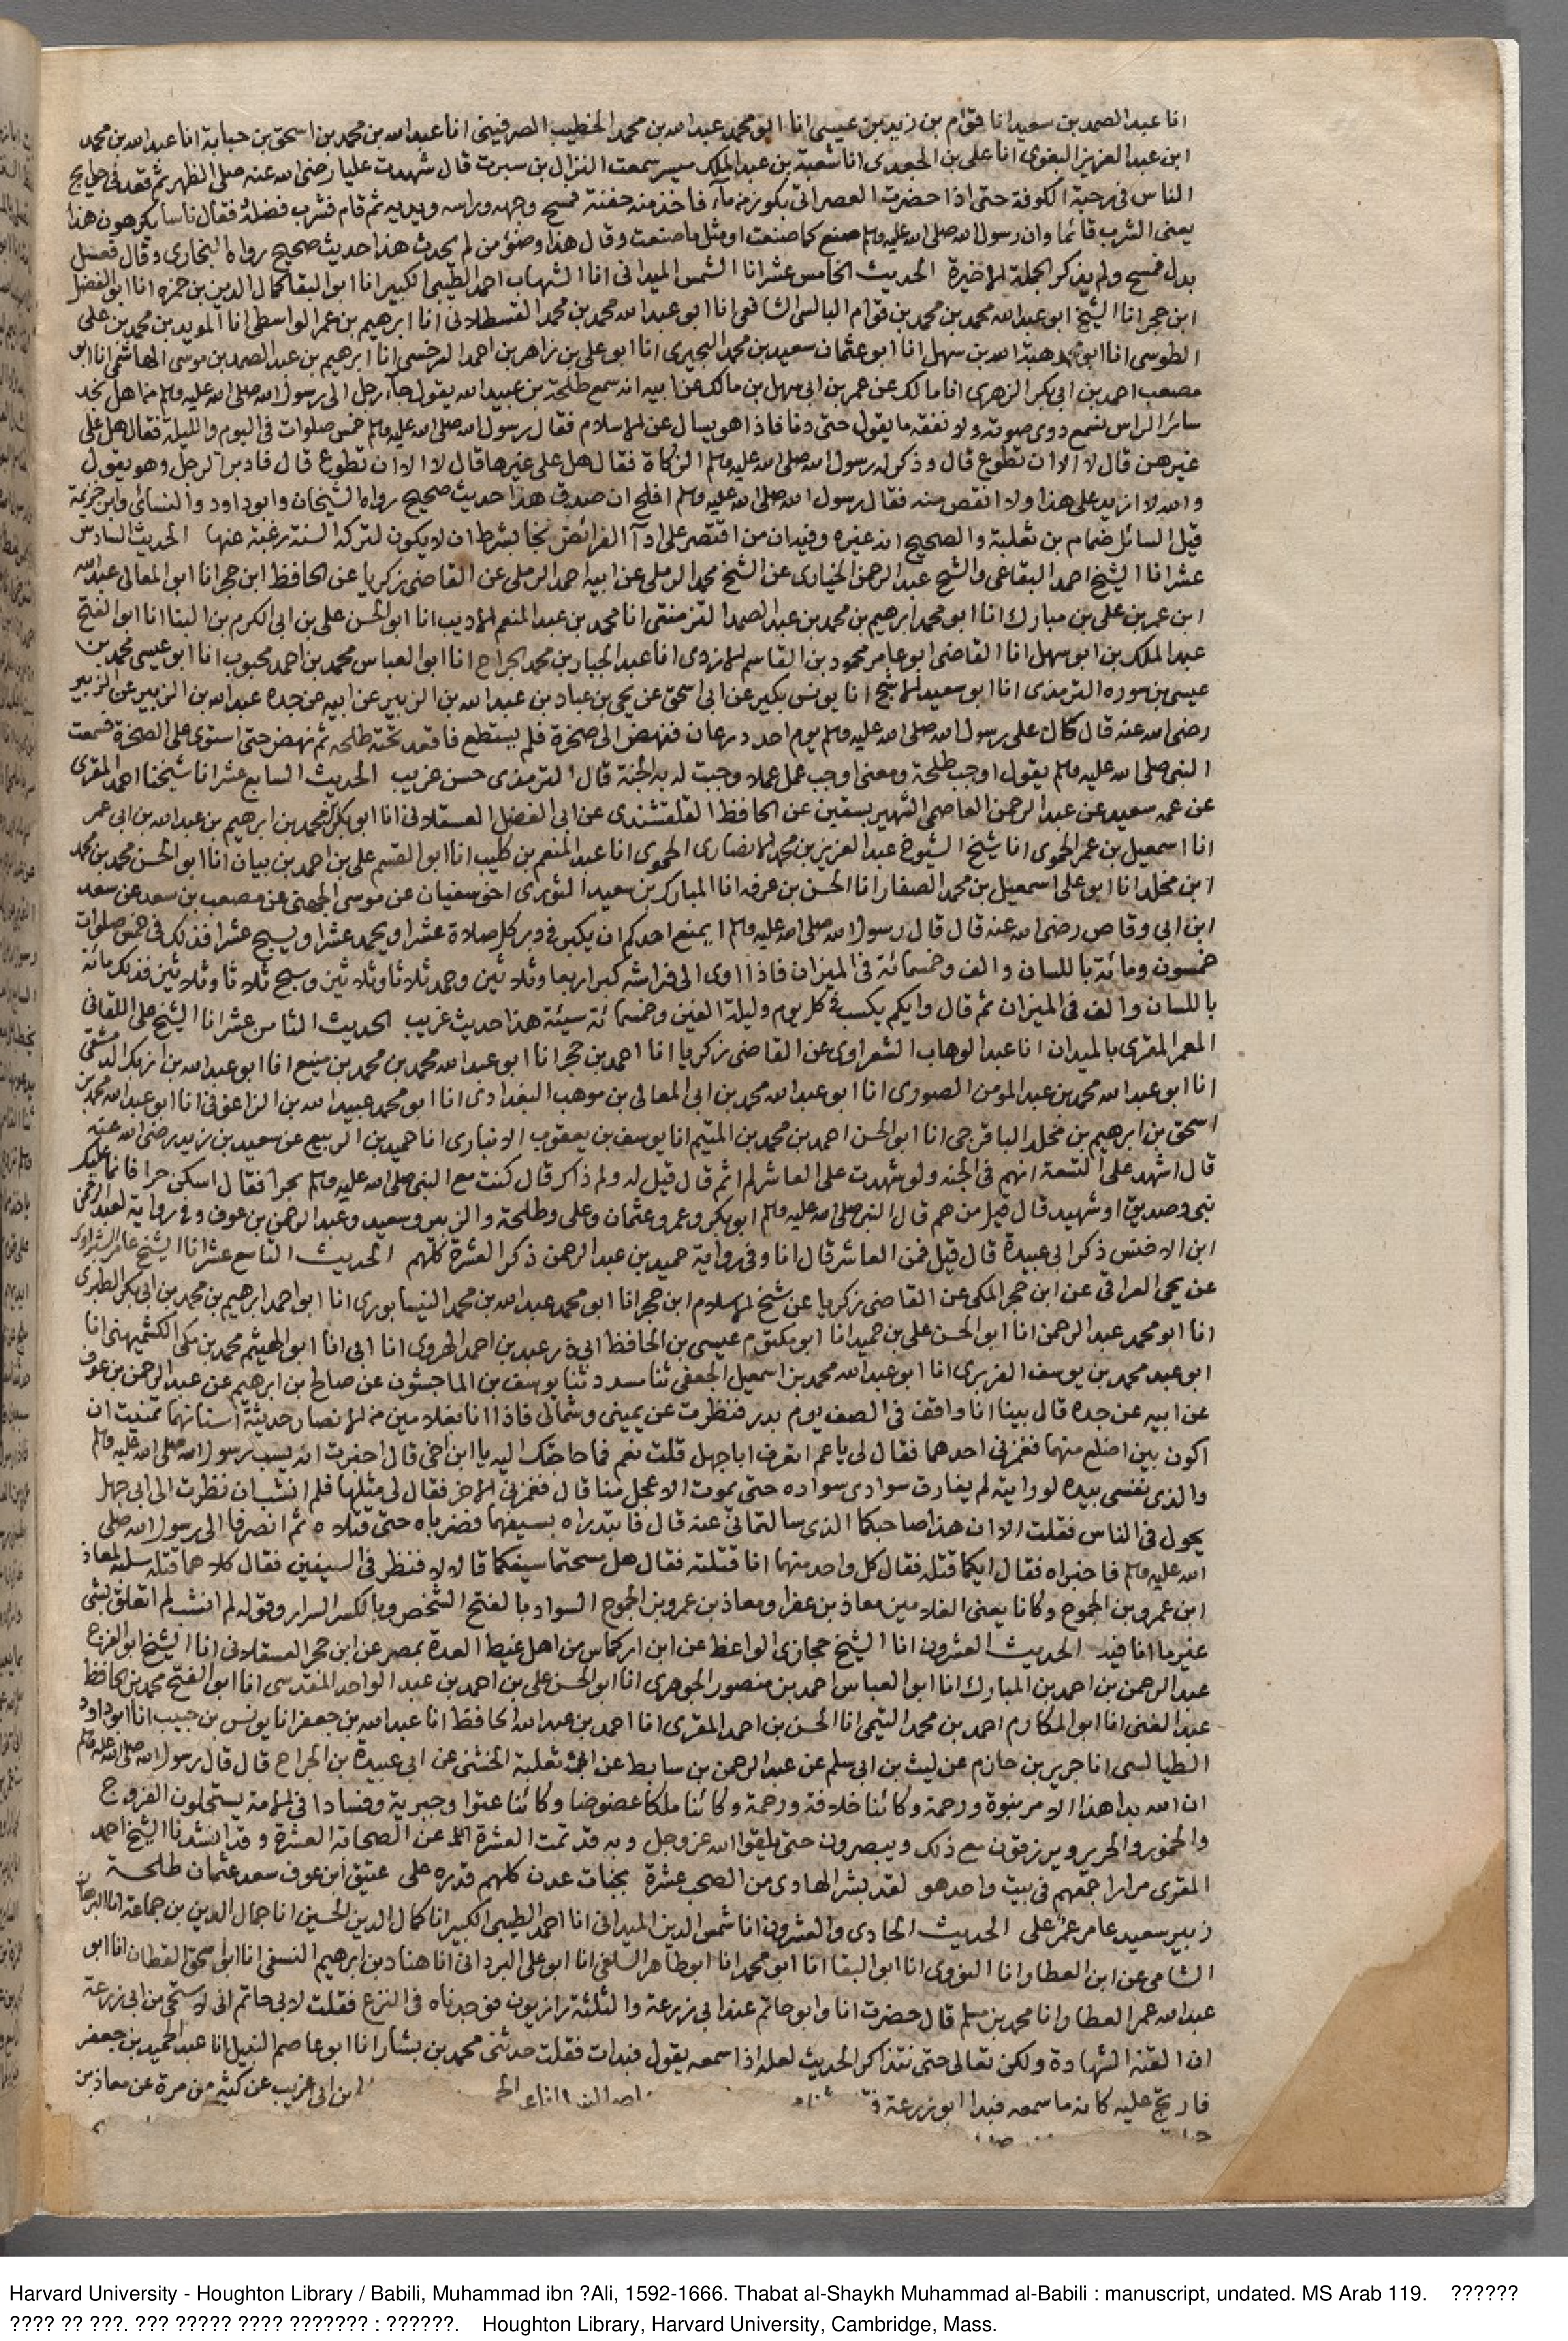 انا عبد الصمد بن سعيد انا قوام بن زيد بن عيسى انا ابو محمد عبد الله بن محمد الخطيب الصرفيني انا عبد الله بن محمد بن اسحق بن حبابة انا عبد الله بن محمد
ابن عبد العزيز البغوى انا على بن الجعدى انا شعبة بن عبد الملك ميسر سمعت النزال بن سبرت قال شهدت عليا رضى الله عنه صلى الظهر ثم قعد فى حوايج
الناس فى رحبة الكوفة حتى اذا حضرت العصر اتى بكوز من مآء فاخذ منه حفنة فمسح وجهه وراسه ويديه ثم قام فشرب فضله فقال ناسا يكرهون هذا
يعنى الشرب قائما وان رسول الله صلى الله عليه وسلم صنع كما صنعت او مثل ما صنعت وقال هذا وضوء من لم يحدث هذا حديث صحيح رواه البخارى وقال فغسل
بدل فمسح ولم يذكر الجملة الاخيرة الحديث الخامس عشر انا الشمس الميدانى انا الشهاب احمد الطيبى الكبير انا ابو البقا كمال الدين بن حمزه انا ابو الفضل
ابن حجر انا الشيخ ابو عبد الله محمد بن محمد بن قوام البالسى الشافعى انا ابو عبد الله محمد بن محمد القسطلانى انا ابرهيم بن عمر الواسطى انا المويد بن محمد بن على
الطوسى انا ابو محمد هبة الله بن سهل انا ابو عثمان سعيد بن محمد البحيرى انا ابو على بن زاهر بن احمد السرخسى انا ابرهيم بن عبد الصمد بن موسى الهاشمى انا ابو
مصعب احمد بن ابى بكر الزهرى انا مالك عن عمر بن ابى سهل بن مالك عن ابيه انه سمع طلحة بن عبيد الله يقول جآء رجل الى رسول الله صلى الله عليه وسلم من اهل نجد
سائر الراس نسمع دوى صوته ولا نفقه ما يقول حتى دنا فاذا هو يسال عن الاسلام فقال رسول الله صلى الله عليه وسلم خمس صلوات فى اليوم والليلة فقال هل على
غيرهن قال لا الا ان تطوع قال وذكر له رسول الله صلى الله عليه وسلم الزكاة فقال هل على غيرها قال لا الا ان تطوع قال فادبر الرجل وهو يقول
والله لا ازيد على هذا ولا انقص منه فقال رسول الله صلى الله عليه وسلم افلح ان صدق هذا حديث صحيح رواه الشيخان وابو داود والنسائى وابن خزيمة
قيل السائل ضمام بن ثعلبة والصحيح انه غيره وفيه ان من اقتصر على ادآ الفرائض نجا بشرط ان لا يكون لتركه السنة رغبة عنها الحديث السادس
عشر انا الشيخ احمد البقاعى والشيخ عبد الرحمن الخيارى عن الشيخ محمد الرملى عن ابيه احمد الرملى عن القاضى زكريا عن الحافظ ابن حجر انا ابو المعالى عبد الله
ابن عمر بن على بن مبارك انا ابو محمد ابرهيم بن محمد بن عبد الصمد التزمنتى انا محمد بن عبد المنعم الاديب انا ابو الحسن على بن ابى الكرم بن البنا انا ابو الفتح
عبد الملك بن ابو سهل انا القاضى ابو عامر محمود بن القاسم الازدى انا عبد الجبار بن محمد الجراح انا ابو العباس محمد بن احمد محبوب انا ابو عيسى محمد بن
عيسى بن سوره الترمذى انا ابو سعيد الاشج انا يونس بكير عن ابى اسحق عن يحى بن عباد بن عبد الله بن الزبير عن ابيه عن جده عبد الله بن الزبير عن الزبير
رضى الله عنه قال كان على رسول الله صلى الله عليه وسلم يوم احد درعان فنهض الى صخرة فلم يستطع فاقعد تحته طلحه ثم نهض حتى استوى على الصخرة فسمعت
النبى صلى الله عليه وسلم يقول اوجب طلحة ومعنى اوجب عمل عملا وجبت له به الجنة قال الترمذى حسن غريب الحديث السابع عشر انا شيخنا احمد المقرى
عن عمه سعيد عن عبد الرحمن العاصمى الشهير بسقين عن الحافظ القلقشندى عن ابى الفضل العسقلانى انا ابو بكر محمد بن ابرهيم بن عبد الله بن ابى عمر
انا اسمعيل بن عمر الحموى انا شيخ الشيوخ عبد العزيز بن محمد الانصارى الحموى انا عبد المنعم بن كليب انا ابو القسم على بن احمد بن بيان انا ابو الحسن محمد بن محمد
ابن مخلد انا ابو على اسمعيل بن محمد الصفار انا الحسن بن عرفه انا المبارك بن سعيد الثورى اخو سفيان عن موسى الجهنى عن مصعب بن سعد عن سعد
ابن ابى وقاص رضى الله عنه قال قال رسول الله صلى الله عليه وسلم ايمنع احدكم ان يكبر فى دبر كل صلاة عشرا ويحمد عشرا ويسبح عشرا فذلك فى خمس صلوات
خمسون ومائة باللسان والف وخمسمائة فى الميزان فاذا اوى الى فراشه كبر اربعا وثلاثين وحمد ثلاثا وثلاثين وسبح ثلاثا وثلاثين فذلك مائة
باللسان والف فى الميزان ثم قال وايكم يكسب فى كل يوم وليلة الفين وخمسمائة سيئة هذا حديث غريب الحديث الثامن عشر انا الشيخ على اللقانى
المعمر المقرى بالميدان انا عبد الوهاب الشعراوى عن القاضى زكريا انا احمد بن حجر انا ابو عبد الله محمد بن محمد بن منيع انا ابو عبد الله بن ازبك الدمشقى
انا ابو عبد الله محمد بن عبد المومن الصورى انا ابو عبد الله محمد بن ابى المعالى بن موهب البغدادى انا ابو محمد عبيد الله بن الزاغونى انا ابو عبد الله محمد بن
اسحق بن ابرهيم بن مخلد الباقرحى انا ابو الحسن احمد بن محمد بن المتيم انا يوسف بن يعقوب الانبارى انا حميد بن الربيع عن سعيد بن زيد رضى الله عنه
قال اشهد على التسعة انهم فى الجنه ولو شهدت على العاشر لم اثم قال قيل له ولم ذاك قال كنت مع النبى صلى الله عليه وسلم بحرا فقال اسكن حرا فانما عليك
نبى وصديق او شهيد قال قيل من هم قال النبى صلى الله عليه وسلم ابو بكر وعمر وعثمان وعلى وطلحة والزبير وسعيد وعبد الرحمن بن عوف وفى رواية لعبد الرحمن
ابن الاخنس ذكر ابى عبيدة قال قيل فمن العاشر قال انا وفى رواية حميد بن عبد الرحمن ذكر العشرة كلهم الحديث التاسع عشر انا الشيخ عامر الشبراوى
عن يحى العراقى عن ابن حجر المكى عن القاضى زكريا عن شيخ الاسلام ابن حجر انا ابو محمد عبد الله بن محمد النيسابورى انا ابو احمد ابرهيم بن محمد بن ابى بكر الطبرى
انا ابو محمد عبد الرحمن انا ابو الحسن على بن حميد انا ابو مكتوم عيسى بن الحافظ ابى ذر عبد بن احمد الهروى انا ابى انا ابو الهيثم محمد بن مكى الكشميهنى انا
ابو عبد محمد بن يوسف الفربرى انا ابو عبد الله محمد بن اسمعيل الجعفى ثنا مسدد ثنا يوسف بن الماجشون عن صالح بن ابرهيم عن عبد الرحمن بن عوف
عن ابيه عن جده قال بينا انا واقف فى الصف يوم بدر فنظرت عن يمينى وشمالى فاذا انا بغلامين من الانصار حديثة اسنانهما تمنيت ان
اكون بين اضلع منهما فغمزنى احدهما فقال لى يا عم اتعرف ابا جهل قلت نعم فما حاجتك اليه يا ابن اخى قال اخبرت انه يسب رسول الله صلى الله عليه وسلم
والذى نفسى بيده لو رايته لم يفارق سوادى سواده حتى يموت الاعجل منا قال فغمزنى الاخر فقال لى مثلها فلم انشب ان نظرت الى ابى جهل
يجول فى الناس فقلت الا ان هذا صاحبكما الذى سالتمانى عنه قال فابتدراه بسيفهما فضرباه حتى قتلاه ثم انصرفا الى رسول الله صلى
الله عليه وسلم فاخبراه فقال ايكما قتله فقال كل واحد منهما انا قتلته فقال هل مسحتما سيفكما قالا لا فنظر فى السيفين فقال كلاهما قتله سلبه لمعاذ
ابن عمرو بن الجموح وكانا يعنى الغلامين معاذ بن عفرا ومعاذ بن عمرو بن الجموح السواد بالفتح الشخص وبالكسر السرار وقوله لم انشب لم اتعلق بشى
غير ما انا فيه الحديث العشرون انا الشيخ حجازى الواعظ عن ابن اركماس من اهل غيط العدة بمصر عن ابن حجر العسقلانى انا الشيخ ابو الفرج
عبد الرحمن بن احمد بن المبارك انا ابو العباس احمد بن منصور الجوهرى انا ابو الحسن على بن احمد بن عبد الواحد المقدسى انا ابو الفتح محمد بن الحافظ
عبد الغنى انا ابو المكارم احمد بن محمد التيمى انا الحسن بن احمد المقرى انا احمد بن عبد الله الحافظ انا عبد الله بن جعفر انا يونس بن حبيب انا ابو داود
الطيالسى انا جرير بن حازم عن ليث بن ابى سلم عن عبد الرحمن بن سابط عن ابى ثعلبة الخشنى عن ابى عبيدة بن الجراح قال قال رسول الله صلى الله عليه وسلم
ان الله بدا هذا الامر بنبوة ورحمة وكائنا خلافة ورحمة وكائنا ملكا عضوضا وكائنا عتوا وجبرية وفسادا فى الامة يستحلون الفروج
والخمور والحرير ويرزقون مع ذلك وينصرون حتى يلقوا الله عز وجل وبه قد تمت العشرة عن الصحابة العشرة وقد انشدنا الشيخ احمد
المقرى مرارا جمعهم فى بيت واحد هو لقد بشر الهادى من الصحب عشرة بجنات عدن كلهم قدره على عتيق ابن عوف سعد عثمان طلحة
زبير سعيد عامر عمر على الحديث الحادى والعشرون انا شمس الدين الميدانى انا احمد الطيبى الكبير انا كمال الدين الحسين انا جمال الدين بن جماعة انا البرهان
الشامى عن ابن العطار انا النووى انا ابو البقا انا ابو محمد انا ابو طاهر السلفى انا ابو على البردانى انا هناد بن ابرهيم النسفى انا ابو اسحق القطان انا ابو
عبد الله عمر العطار انا محمد بن مسلم قال حضرت انا وابو حاتم عند ابى زرعة والثلثة رازيون فوجدناه فى النزع فقلت لابى حاتم انى لاستحى من ابى زرعة
ان القنه الشهادة ولكن تعالى حتى نتذاكر الحديث لعله اذا سمعه يقول فبدات فقلت حدثنى محمد بن بشار انا ابو عاصم النبيل انا عبد الحميد بن جعفر
فارتج عليه كانه ما سمعه فبدا ابو زرعة ابن ابى عريب عن كثير من مرة عن معاذ بن